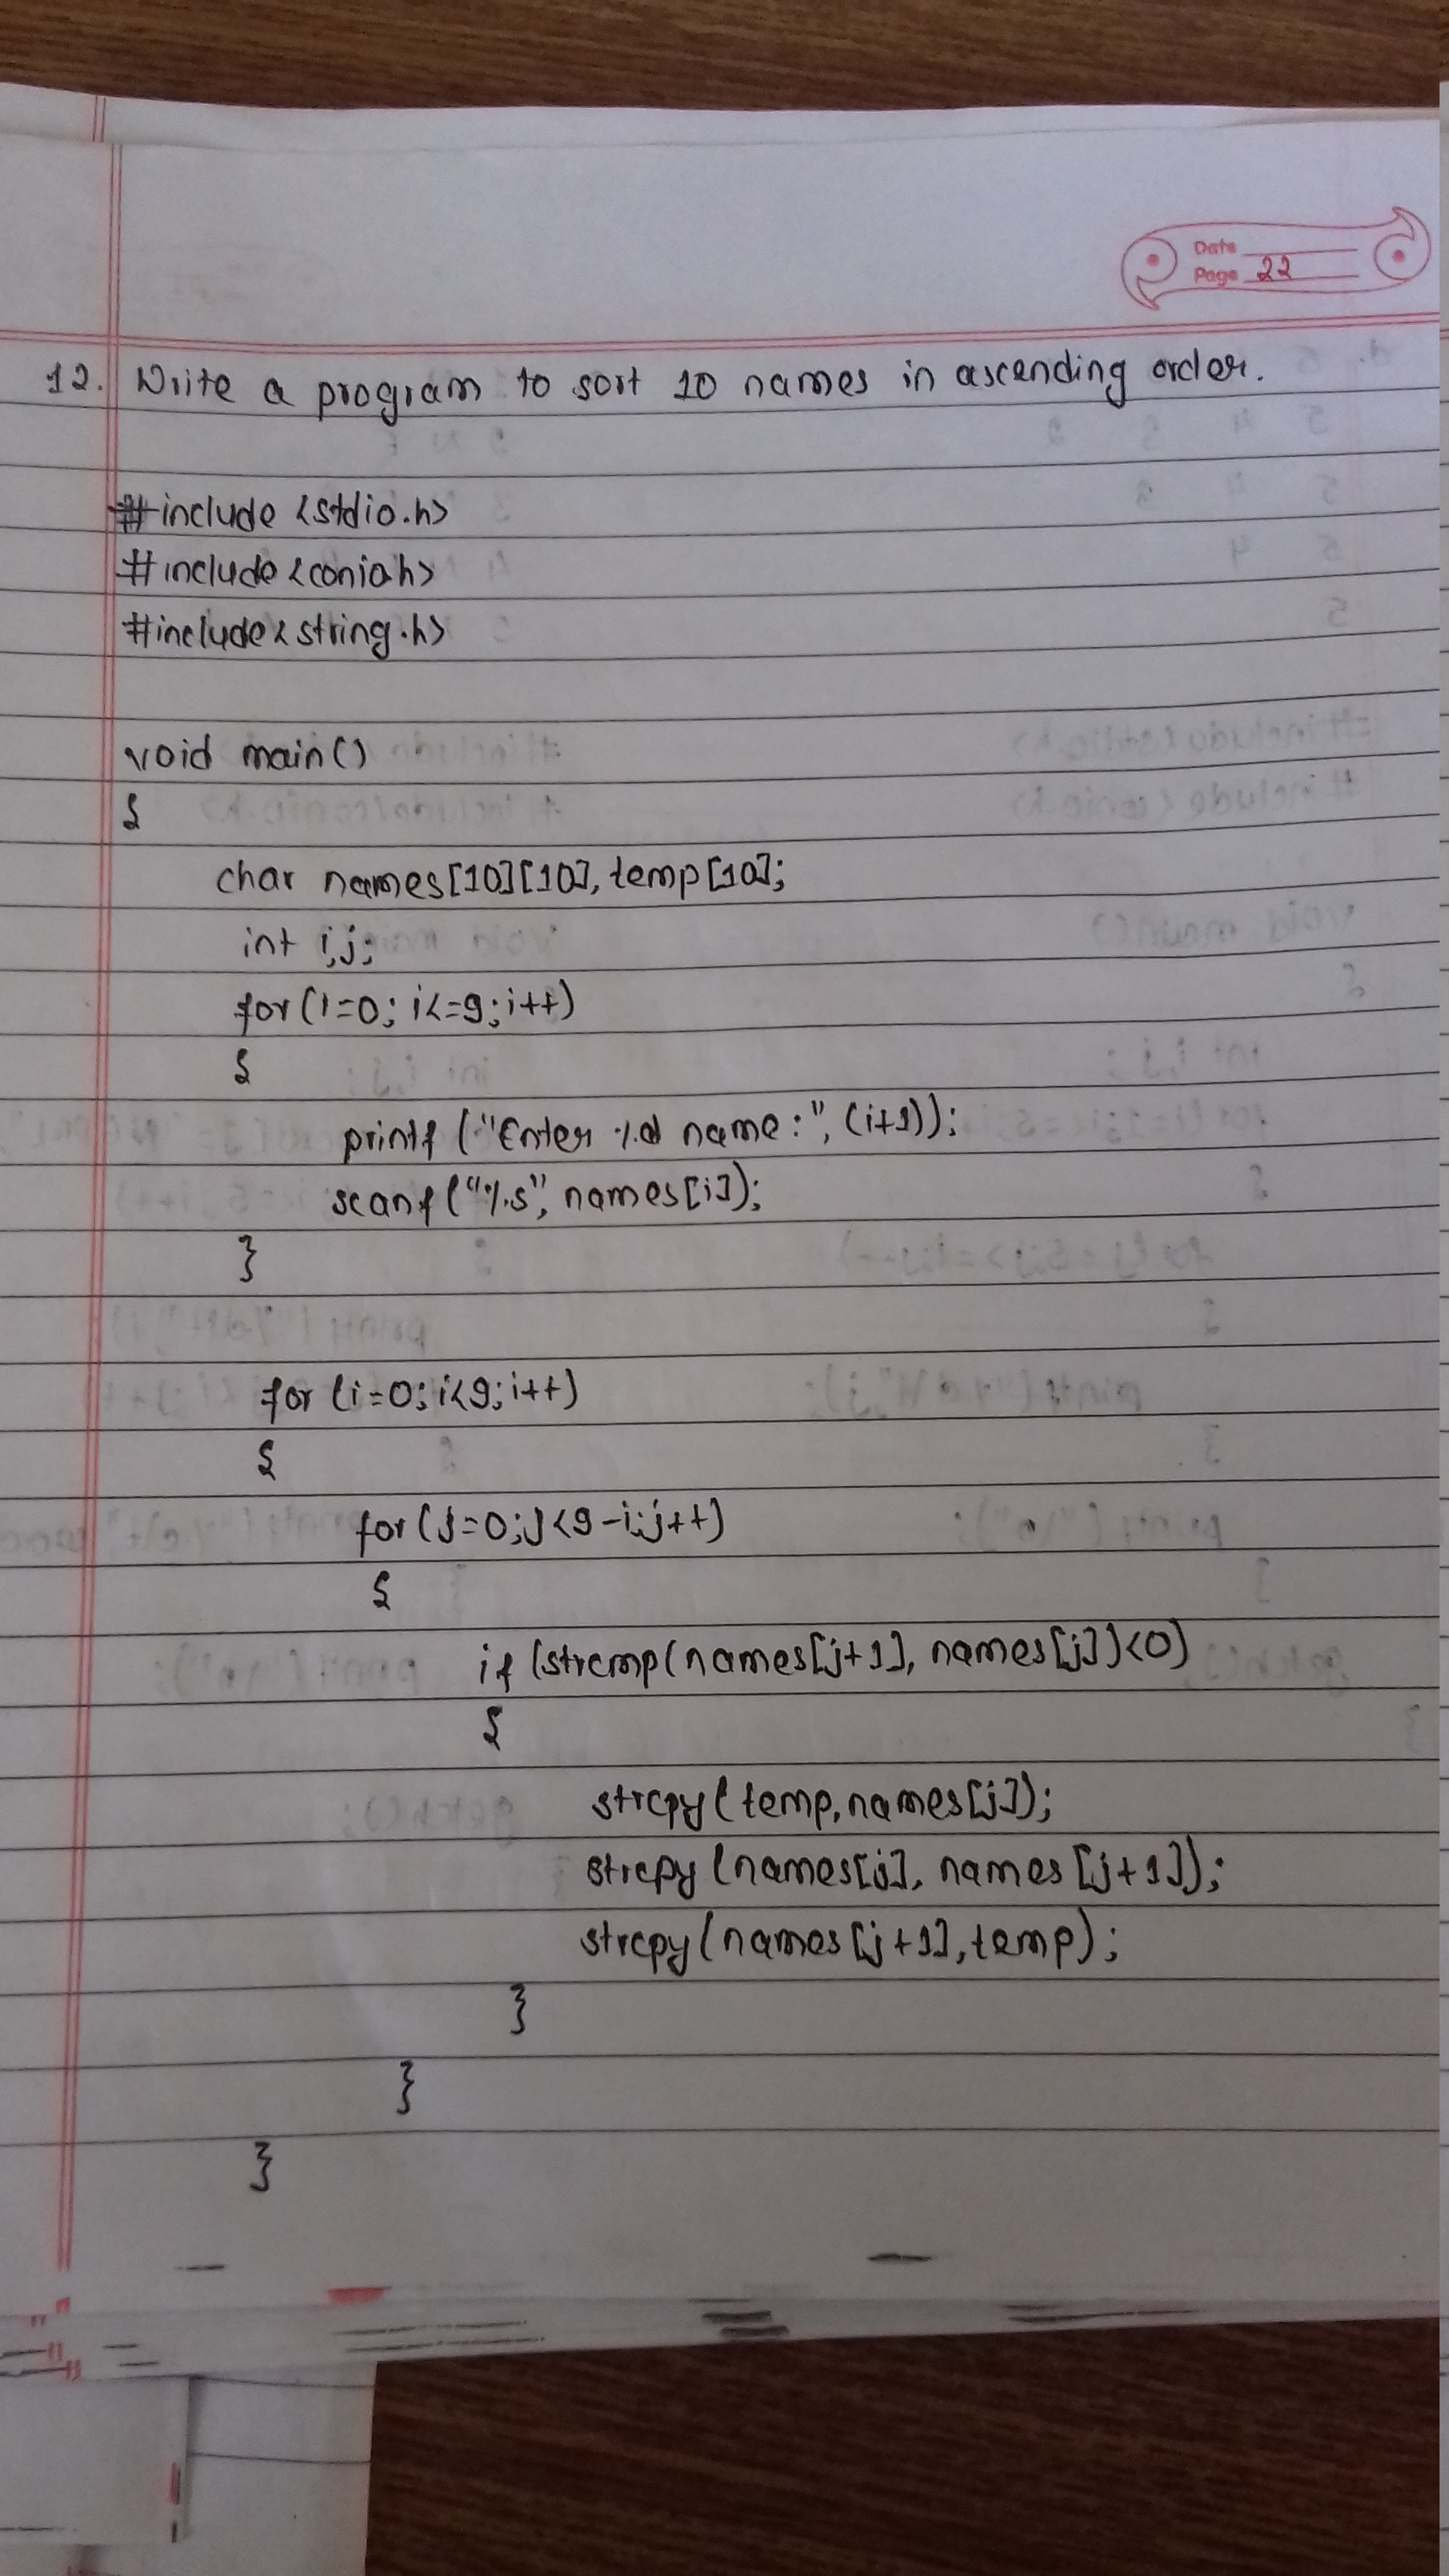 Date
Page 22
12. Write a program to sort 10 names in ascending order.
#include <stdio.h>
#include <conio.h>
#include <string.h>
void main()
{
char names[10][10], temp[10];
int i,j;
for(i=0; i<=9; i++)
{
printf ("Enter %d name:", (i+1));
scanf ("%s", names[i]);
}
for (i=0; i<9; i++)
{
for(j=0; j<9-i; j++)
{
if (strcmp(names[j+1], names[j])<0)
{
strcpy(temp, names[j]);
strcpy (names[j], names [j+1]);
strcpy(names[j+1], temp);
}
}
}